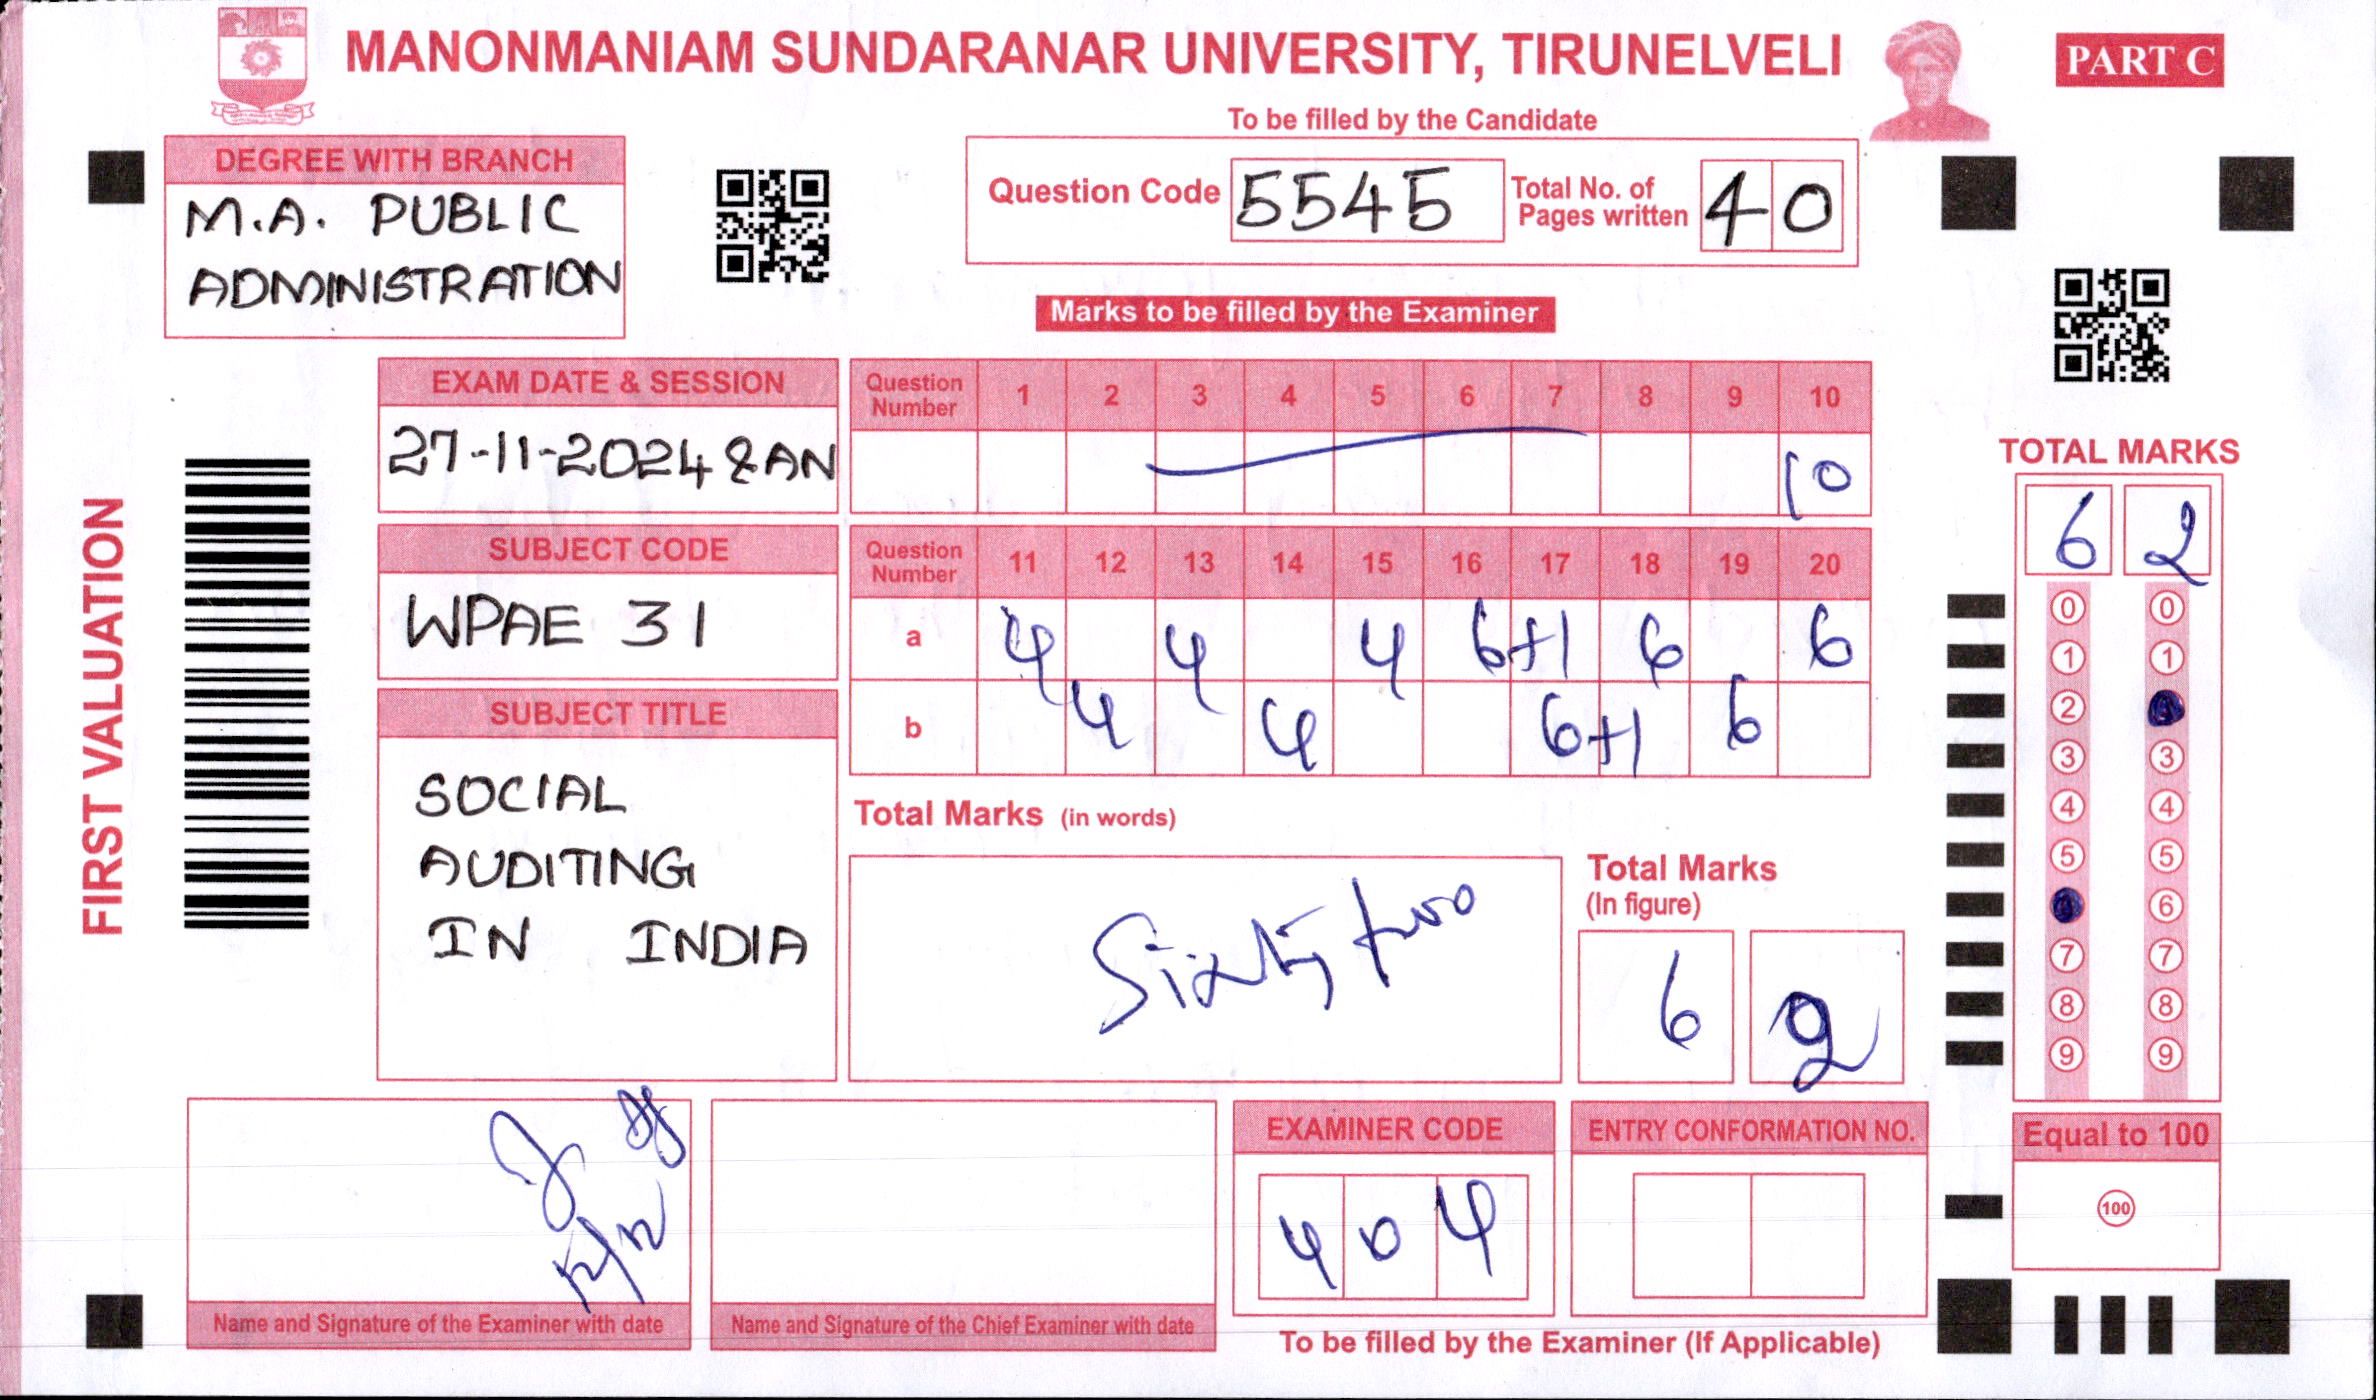 MANONMANIAM SUNDARANAR UNIVERSITY, TIRUNELVELI
PART C
To be filled by the Candidate
DEGREE WITH BRANCH
M.A. PUBLIC
ADMINISTRATION
Question Code 5545
Total No. of
Pages written 40
Marks to be filled by the Examiner
FIRST VALUATION
EXAM DATE & SESSION
27-11-2024 & AN
SUBJECT CODE
WPAE 31
SUBJECT TITLE
SOCIAL
AUDITING
IN INDIA
Question Number 1 2 3 4 5 6 7 8 9 10
10
Question Number 11 12 13 14 15 16 17 18 19 20
a 4 4 4 6+1 6 6
b 4 4 6+1 6
Total Marks (in words)
Sixty two
Total Marks
(In figure)
6 2
TOTAL MARKS
6 2
0 0
1 1
2
3 3
4 4
5 5
6
7 7
8 8
9 9
Equal to 100
100
EXAMINER CODE
4 0 4
ENTRY CONFORMATION NO.
Name and Signature of the Examiner with date
Name and Signature of the Chief Examiner with date
To be filled by the Examiner (If Applicable)